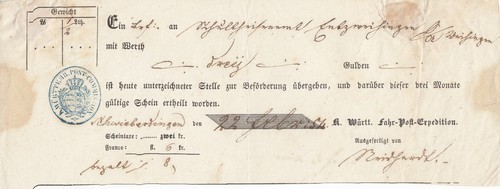 Gewicht
℔ Lth.
1/2
Ein Brf: an Schultheißenamt Enzweihingen OA Vaihingen
mit Werth
dreißig Gulden
ist heute unterzeichneter Stelle zur Beförderung übergeben, und darüber dieser drei Monate
gültige Schein ertheilt worden.
Schwieberdingen den 22 Febr 54 K. Württ. Fahr-Post-Expedition
Scheintaxe: ..... zwei kr.
Franco: fl. 6 kr. Ausgefertigt von
bezalt 8. Neidhardt.